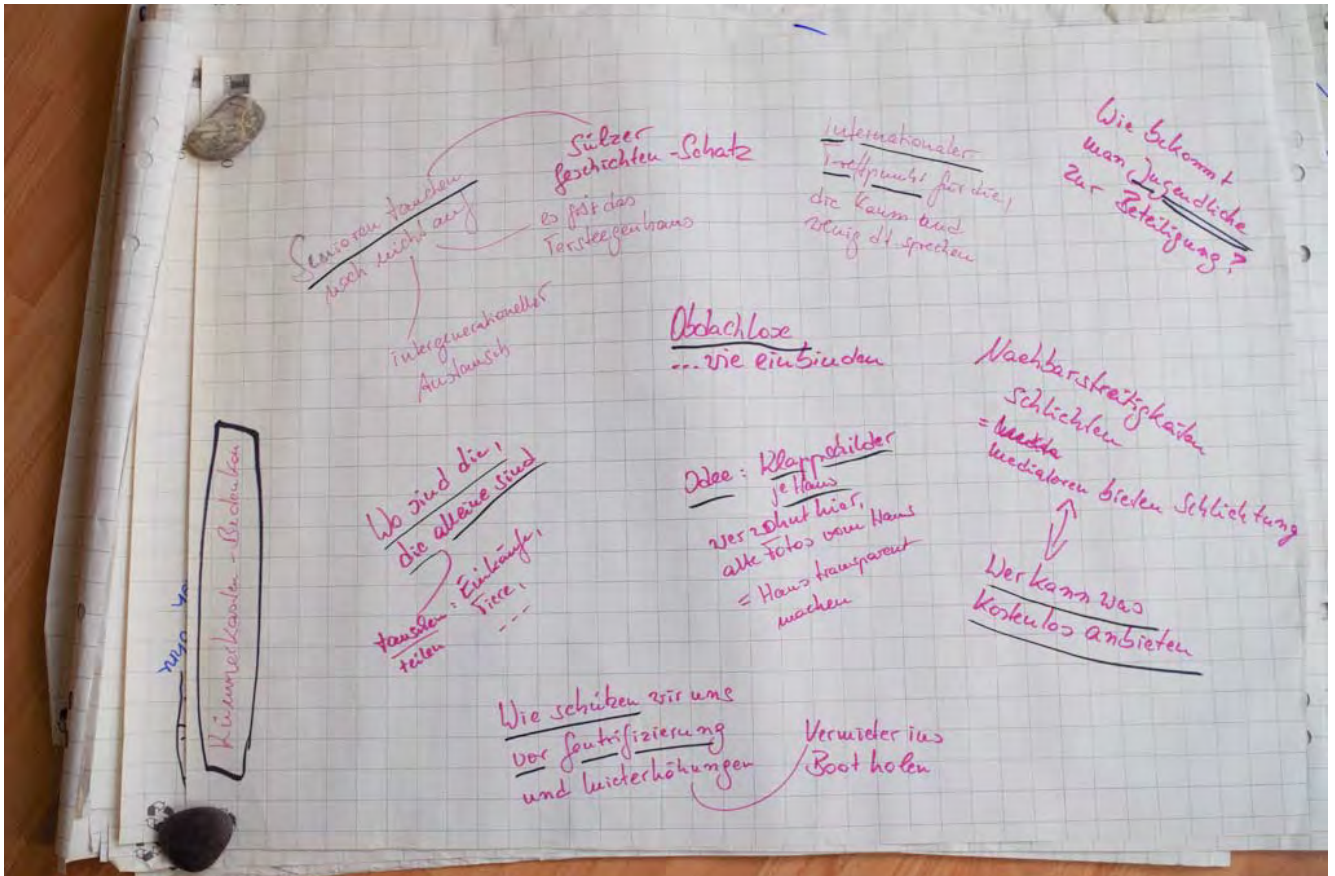 Sülzer
Geschichten-Schatz
Senioren tauchen
noch nicht auf
es gibt das
Tersteegenhaus
intergenerationeller
Austausch
Internationaler
Treffpunkt für die,
die kaum und
wenig dt sprechen
Wie bekommt
man Jugendliche
zur Beteiligung?
Obdachlose
... wie einbinden
Nachbarstreitigkeiten
schlichten
=
Mediatoren bieten Schlichtung
Wer kann was
kostenlos anbieten
Wo sind die,
die alleine sind
tauschen: Einkäufe,
teilen Tiere,
---
Odee: Klappschilder
je Haus
wer wohnt hier,
alte Fotos vom Haus
= Haus transparent
machen
Wie schützen wir uns
vor Gentrifizierung
und Mieterhöhungen
Vermieter ins
Boot holen
Kümmerkasten-Bedenken